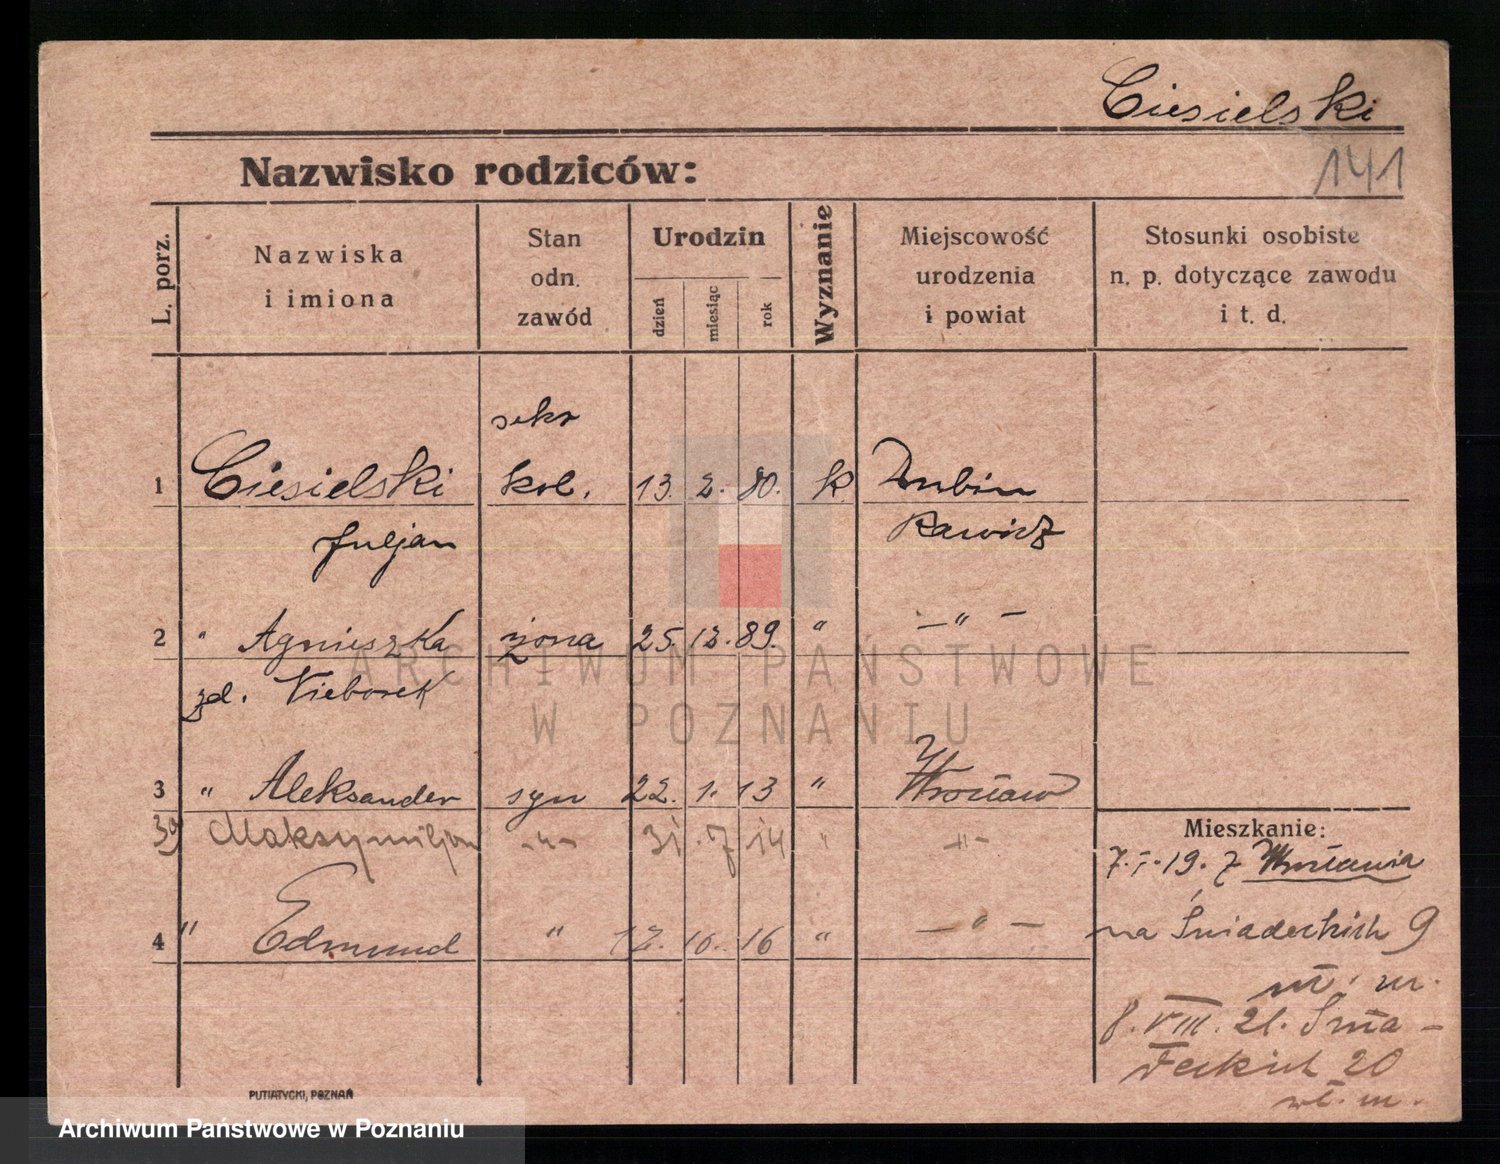 Ciesielski
Nazwisko rodziców:
141
L. porz.
Nazwiska
i imiona
Stan
odn.
zawód
Urodzin
dzień
miesiąc
rok
Wyznanie
Miejscowość
urodzenia
i powiat
Stosunki osobiste
n. p. dotyczące zawodu
i t. d.
sekr
1 Ciesielski kol. 13. 2. 80. k Dubin
Juljan Rawicz
2 " Agnieszka żona 25. 12. 89. " — " —
zd. Nieborek
3 " Aleksander syn 22. 1. 13 " Wrocław
3a Maksymiljan -"- 31. 7 14 " -"-
4 " Edmund " 17. 10. 16 " — " —
Mieszkanie:
7. I. 19. z Wrocławia
na Śniadeckich 9
m.
8. VIII. 21. Śnia-
deckich 20
wł. m.
PUTIATYCKI, POZNAŃ
ARCHIWUM PAŃSTWOWE
W POZNANIU
Archiwum Państwowe w Poznaniu